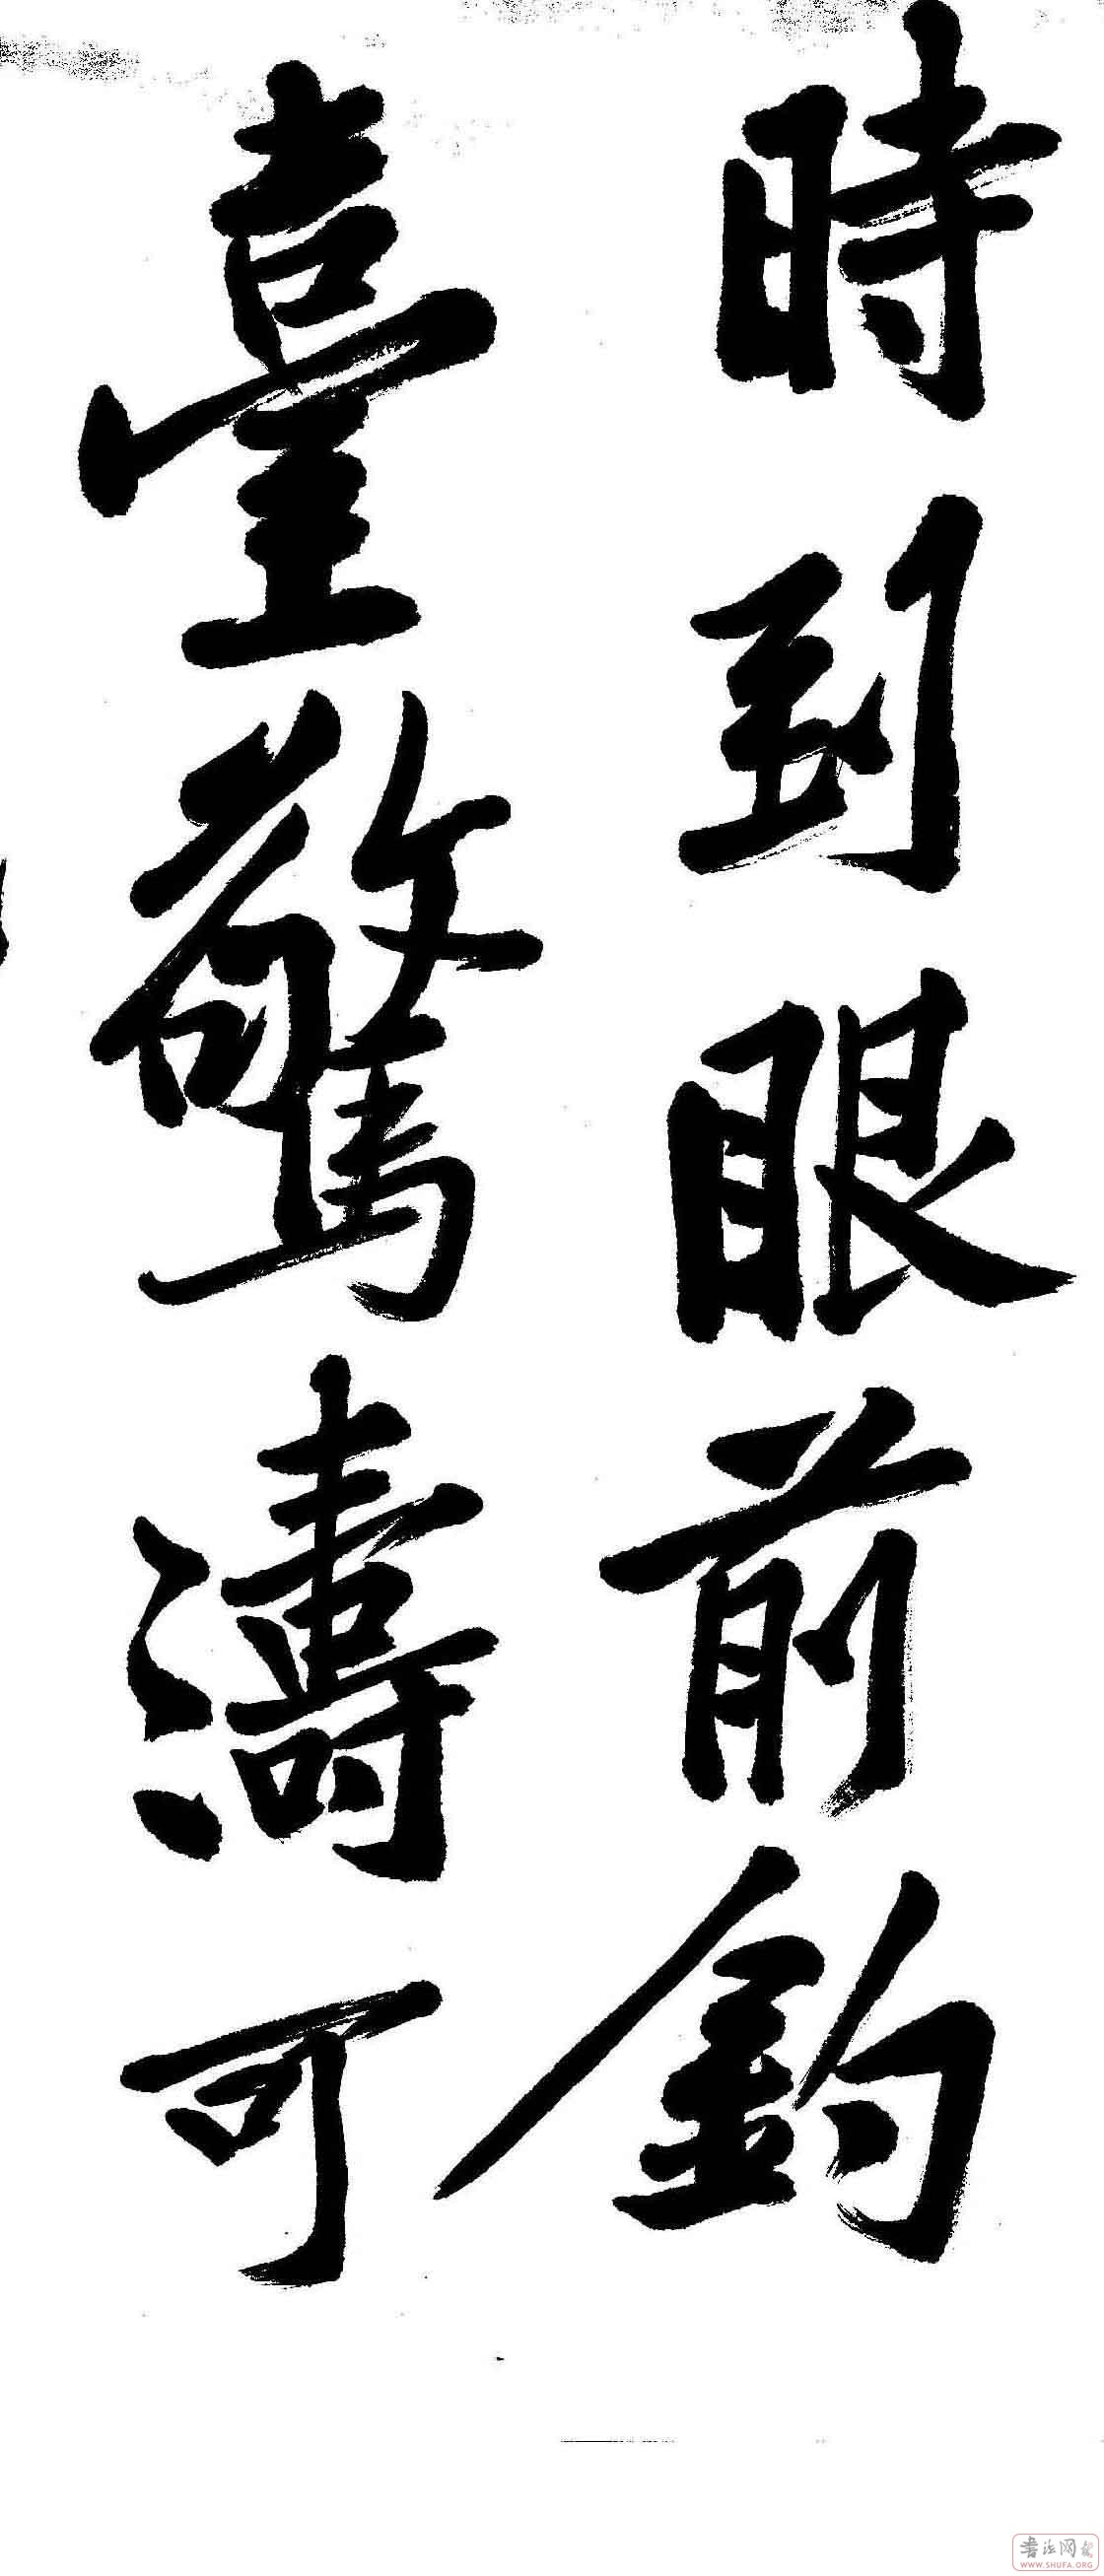 時到眼前釣
臺驚濤可
書法网
WWW.SHUFA.ORG